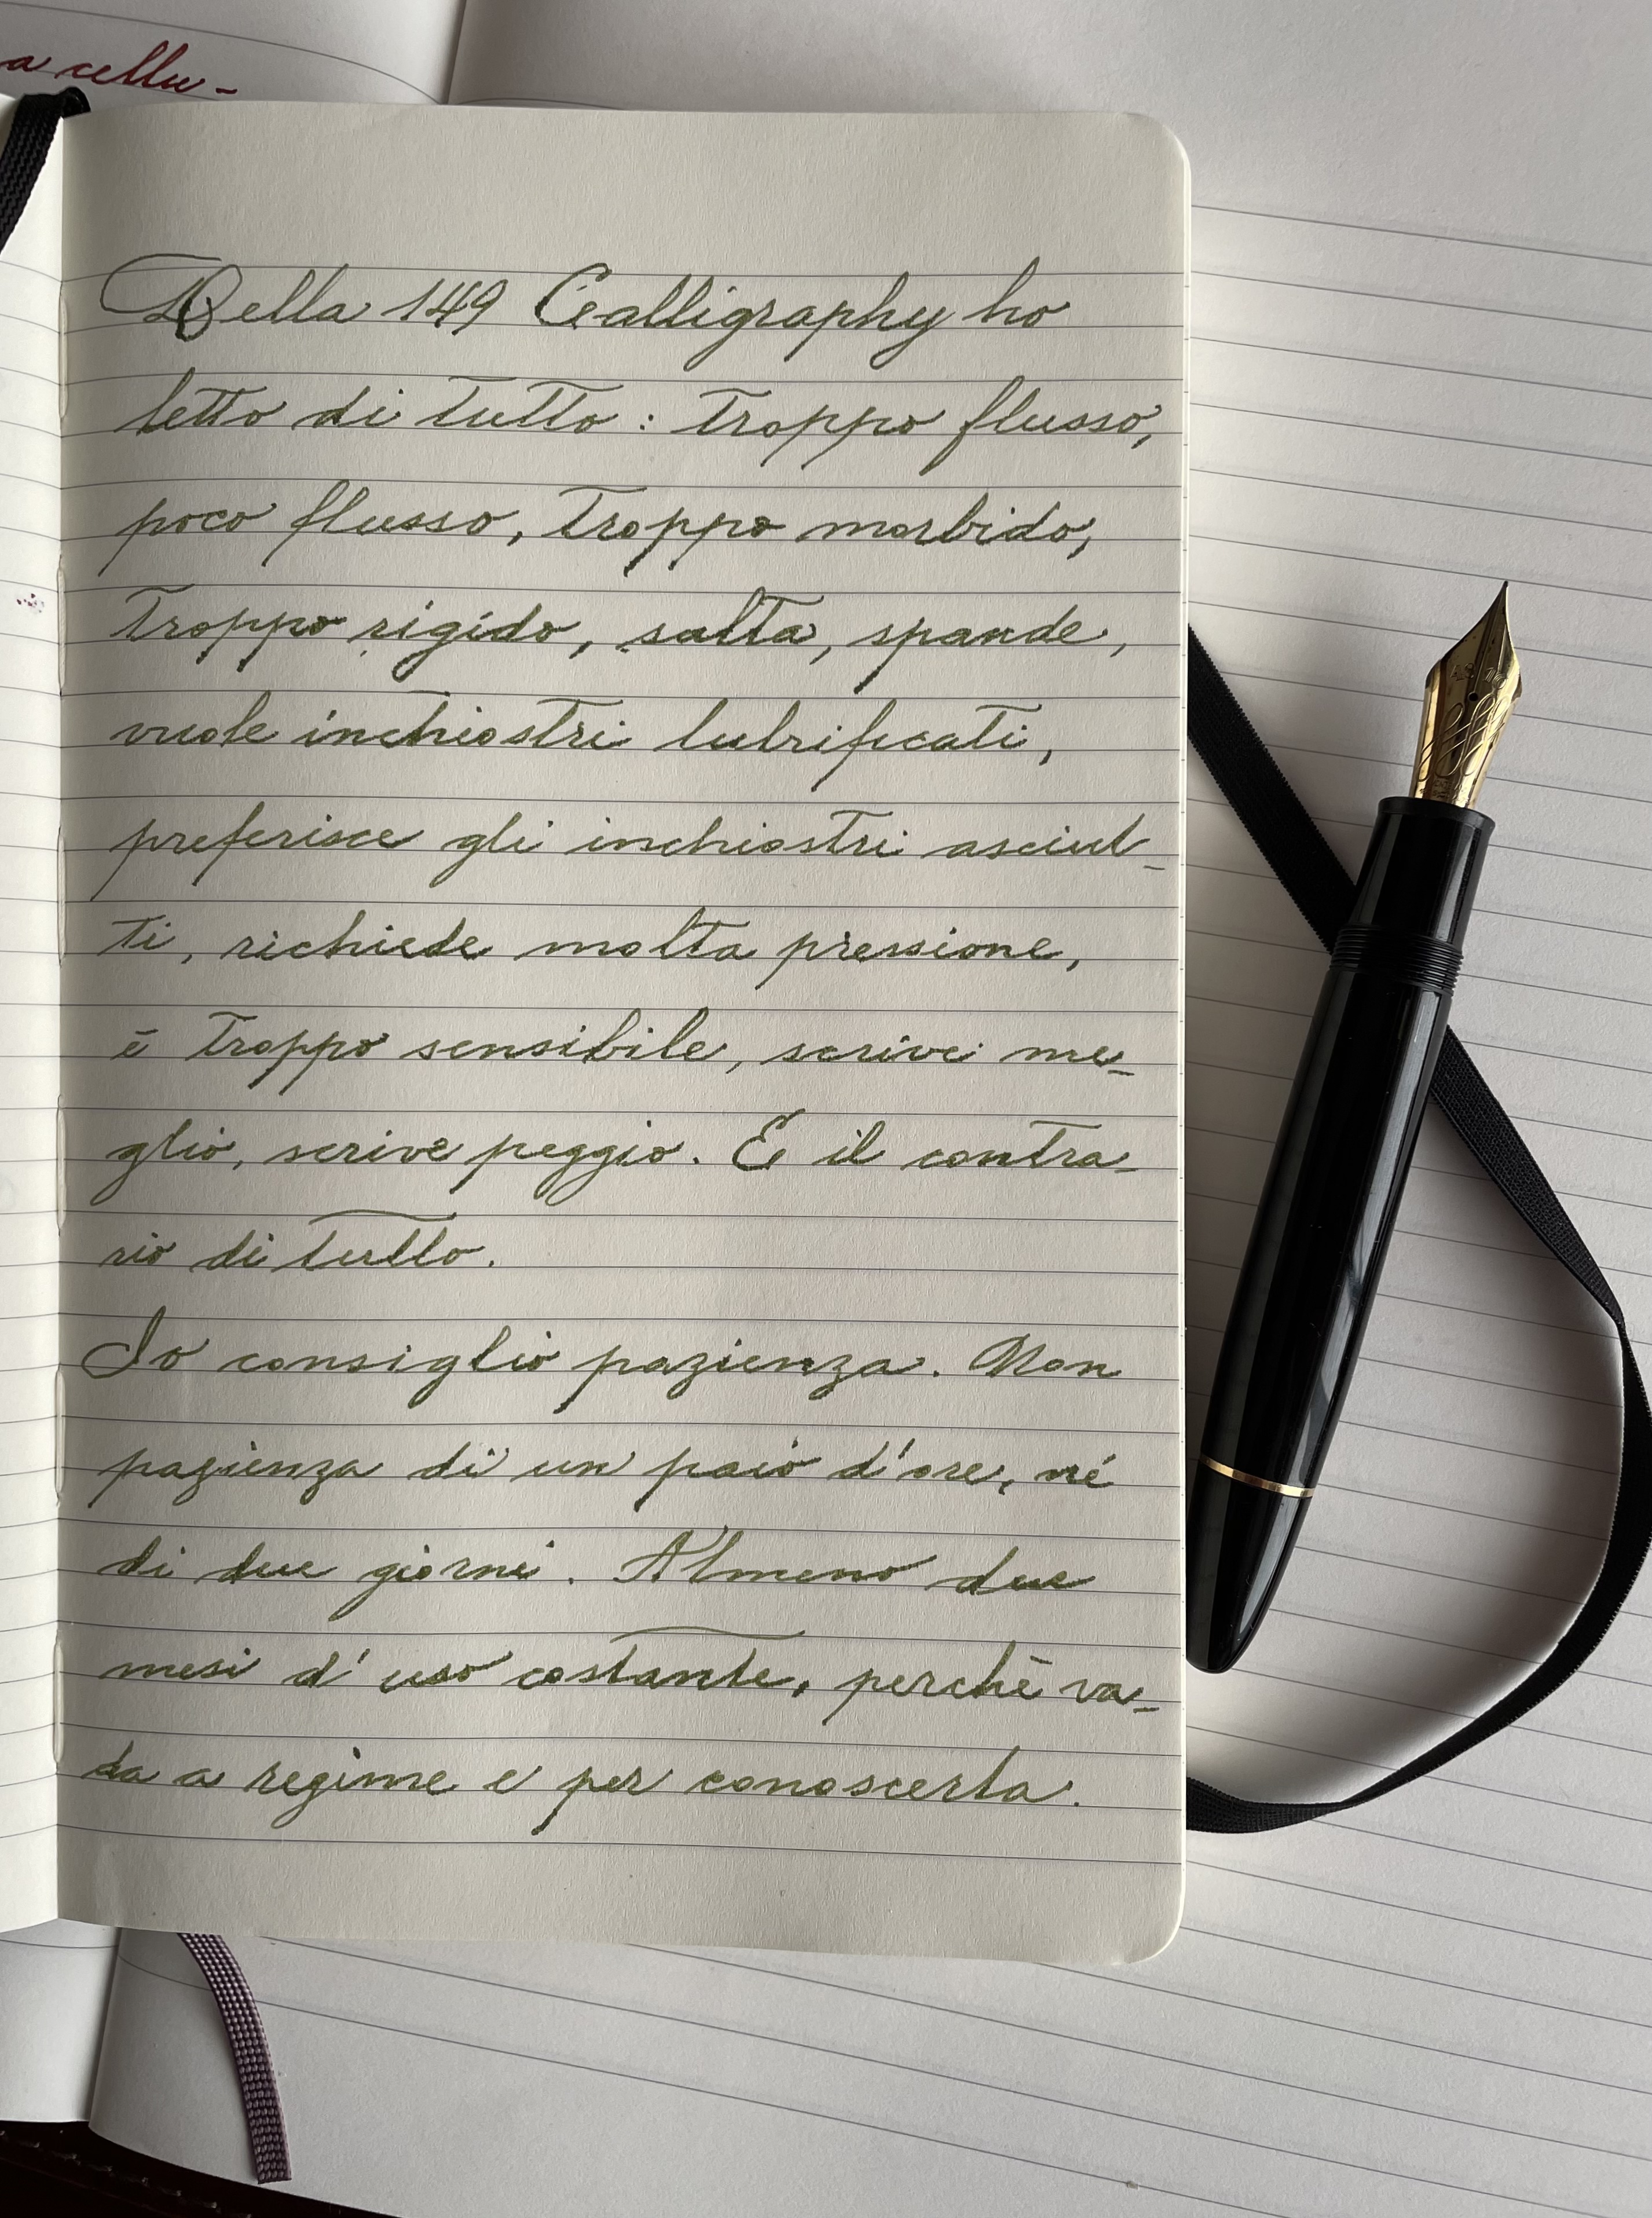 a cellu-
Della 149 Calligraphy ho
letto di tutto: troppo flusso,
poco flusso, troppo morbido,
troppo rigido, salta, spande,
vuole inchiostri lubrificati,
preferisce gli inchiostri asciut-
ti, richiede molta pressione,
è troppo sensibile, scrive me-
glio, scrive peggio. E il contra-
rio di tutto.
Io consiglio pazienza. Non
pazienza di un paio d'ore, né
di due giorni. Almeno due
mesi d'uso costante, perché va-
da a regime e per conoscerla.